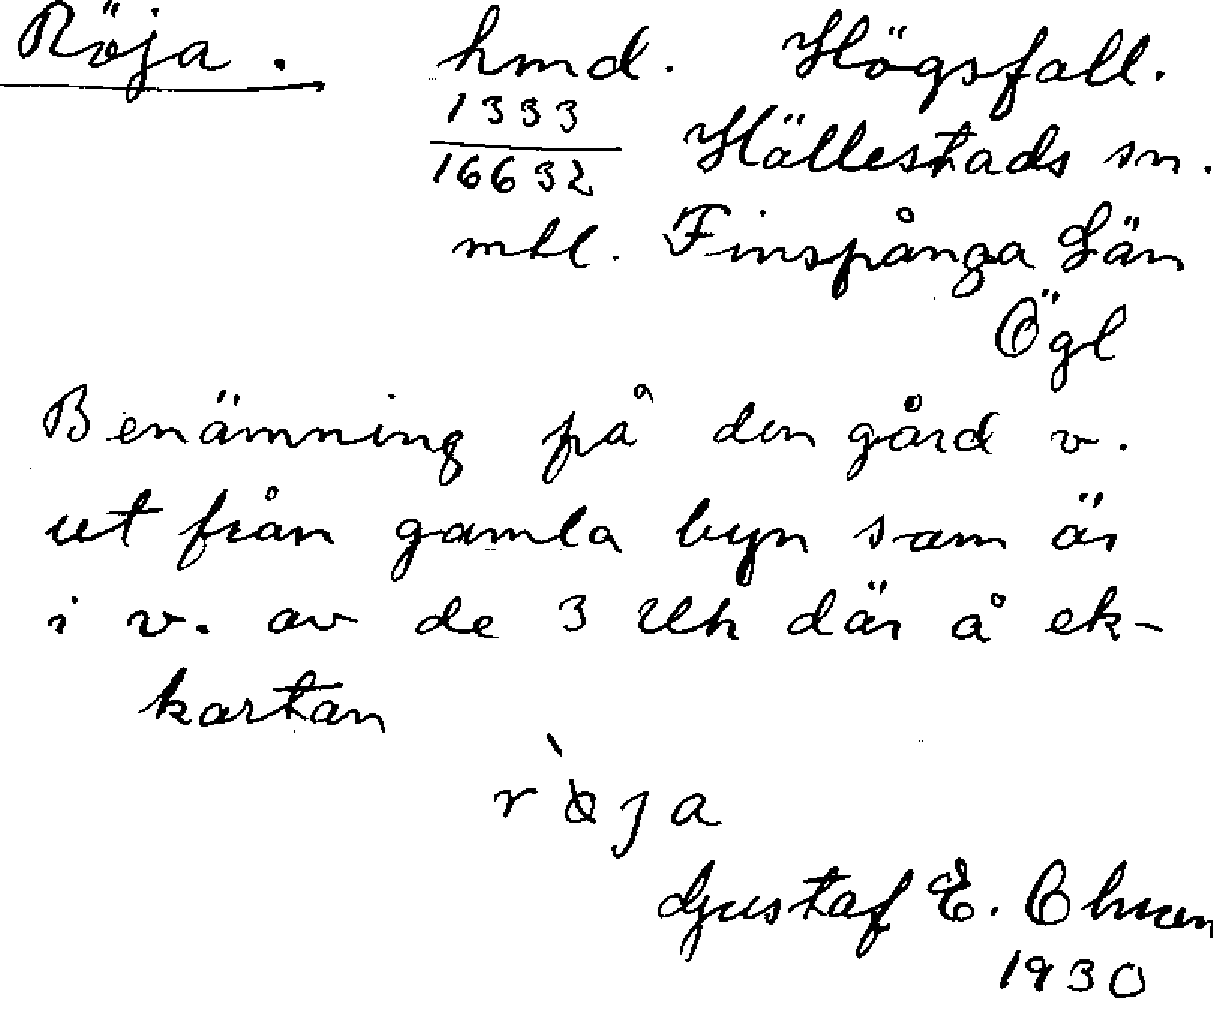 Röja. hmd. Högsfall.
1333 Hällestads sn.
16632
mtl. Finspånga Län
Ögl
Benämning på den gård v.
ut från gamla byn som är
i v. av de 3 Uh där å ek-
kartan
röja
Gustaf E. Ohmen
1930